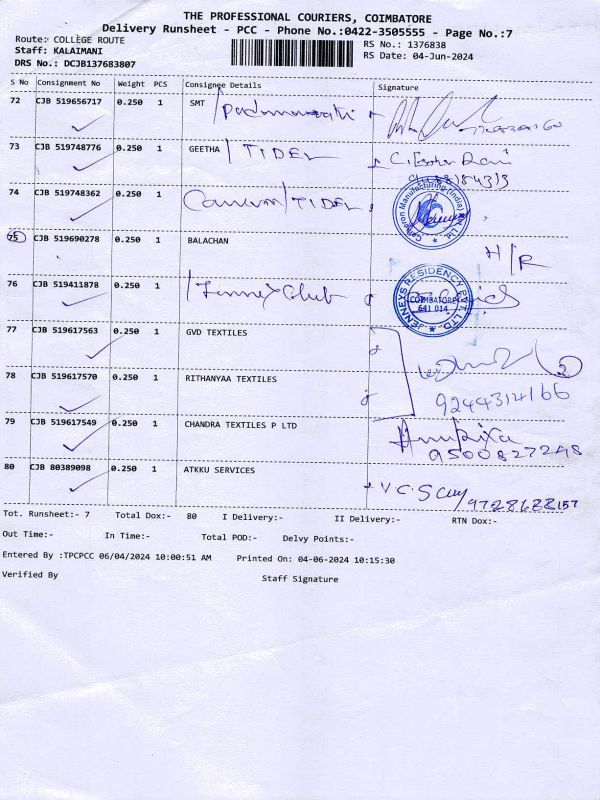 THE PROFESSIONAL COURIERS, COIMBATORE
Delivery Runsheet - PCC - Phone No.:0422-3505555 - Page No.:7
Route: COLLEGE ROUTE
RS No.: 1376838
Staff: KALAIMANI
RS Date: 04-Jun-2024
DRS No.: DCJB137683807
S No Consignment No Weight PCS Consignee Details Signature
72 CJB 519656717 0.250 1 SMT / Padmavathi
73 CJB 519748776 0.250 1 GEETHA / TIDEL
74 CJB 519748362 0.250 1 / TIDEL
Manufacturing (India) Pvt. Ltd.
75 CJB 519690278 0.250 1 BALACHAN H/R
76 CJB 519411878 0.250 1 Club
JENNEYS RESIDENCY PVT. LTD.
COIMBATORE
641 014
77 CJB 519617563 0.250 1 GVD TEXTILES
78 CJB 519617570 0.250 1 RITHANYAA TEXTILES
9244314166
79 CJB 519617549 0.250 1 CHANDRA TEXTILES P LTD
9500827298
80 CJB 80389098 0.250 1 ATKKU SERVICES
Tot. Runsheet:- 7 Total Dox:- 80 I Delivery:- II Delivery:- RTN Dox:-
Out Time:- In Time:- Total POD:- Delvy Points:-
Entered By :TPCPCC 06/04/2024 10:00:51 AM Printed On: 04-06-2024 10:15:30
Verified By Staff Signature